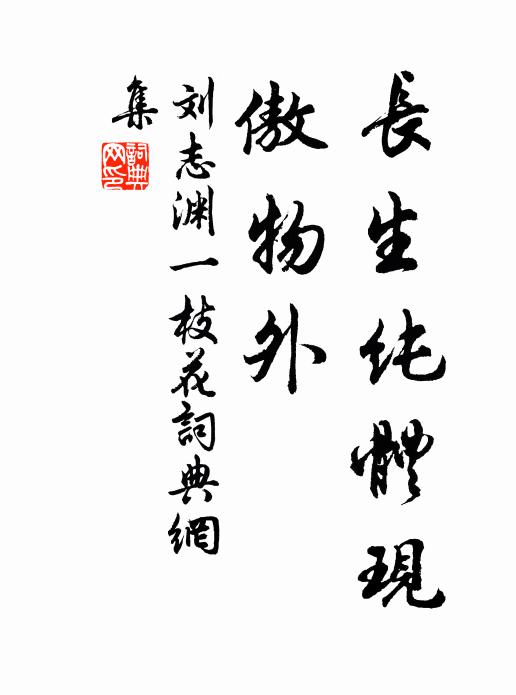 長生纯體現
傲物外
刘志渊一枝花詞典網
集
詞典网印